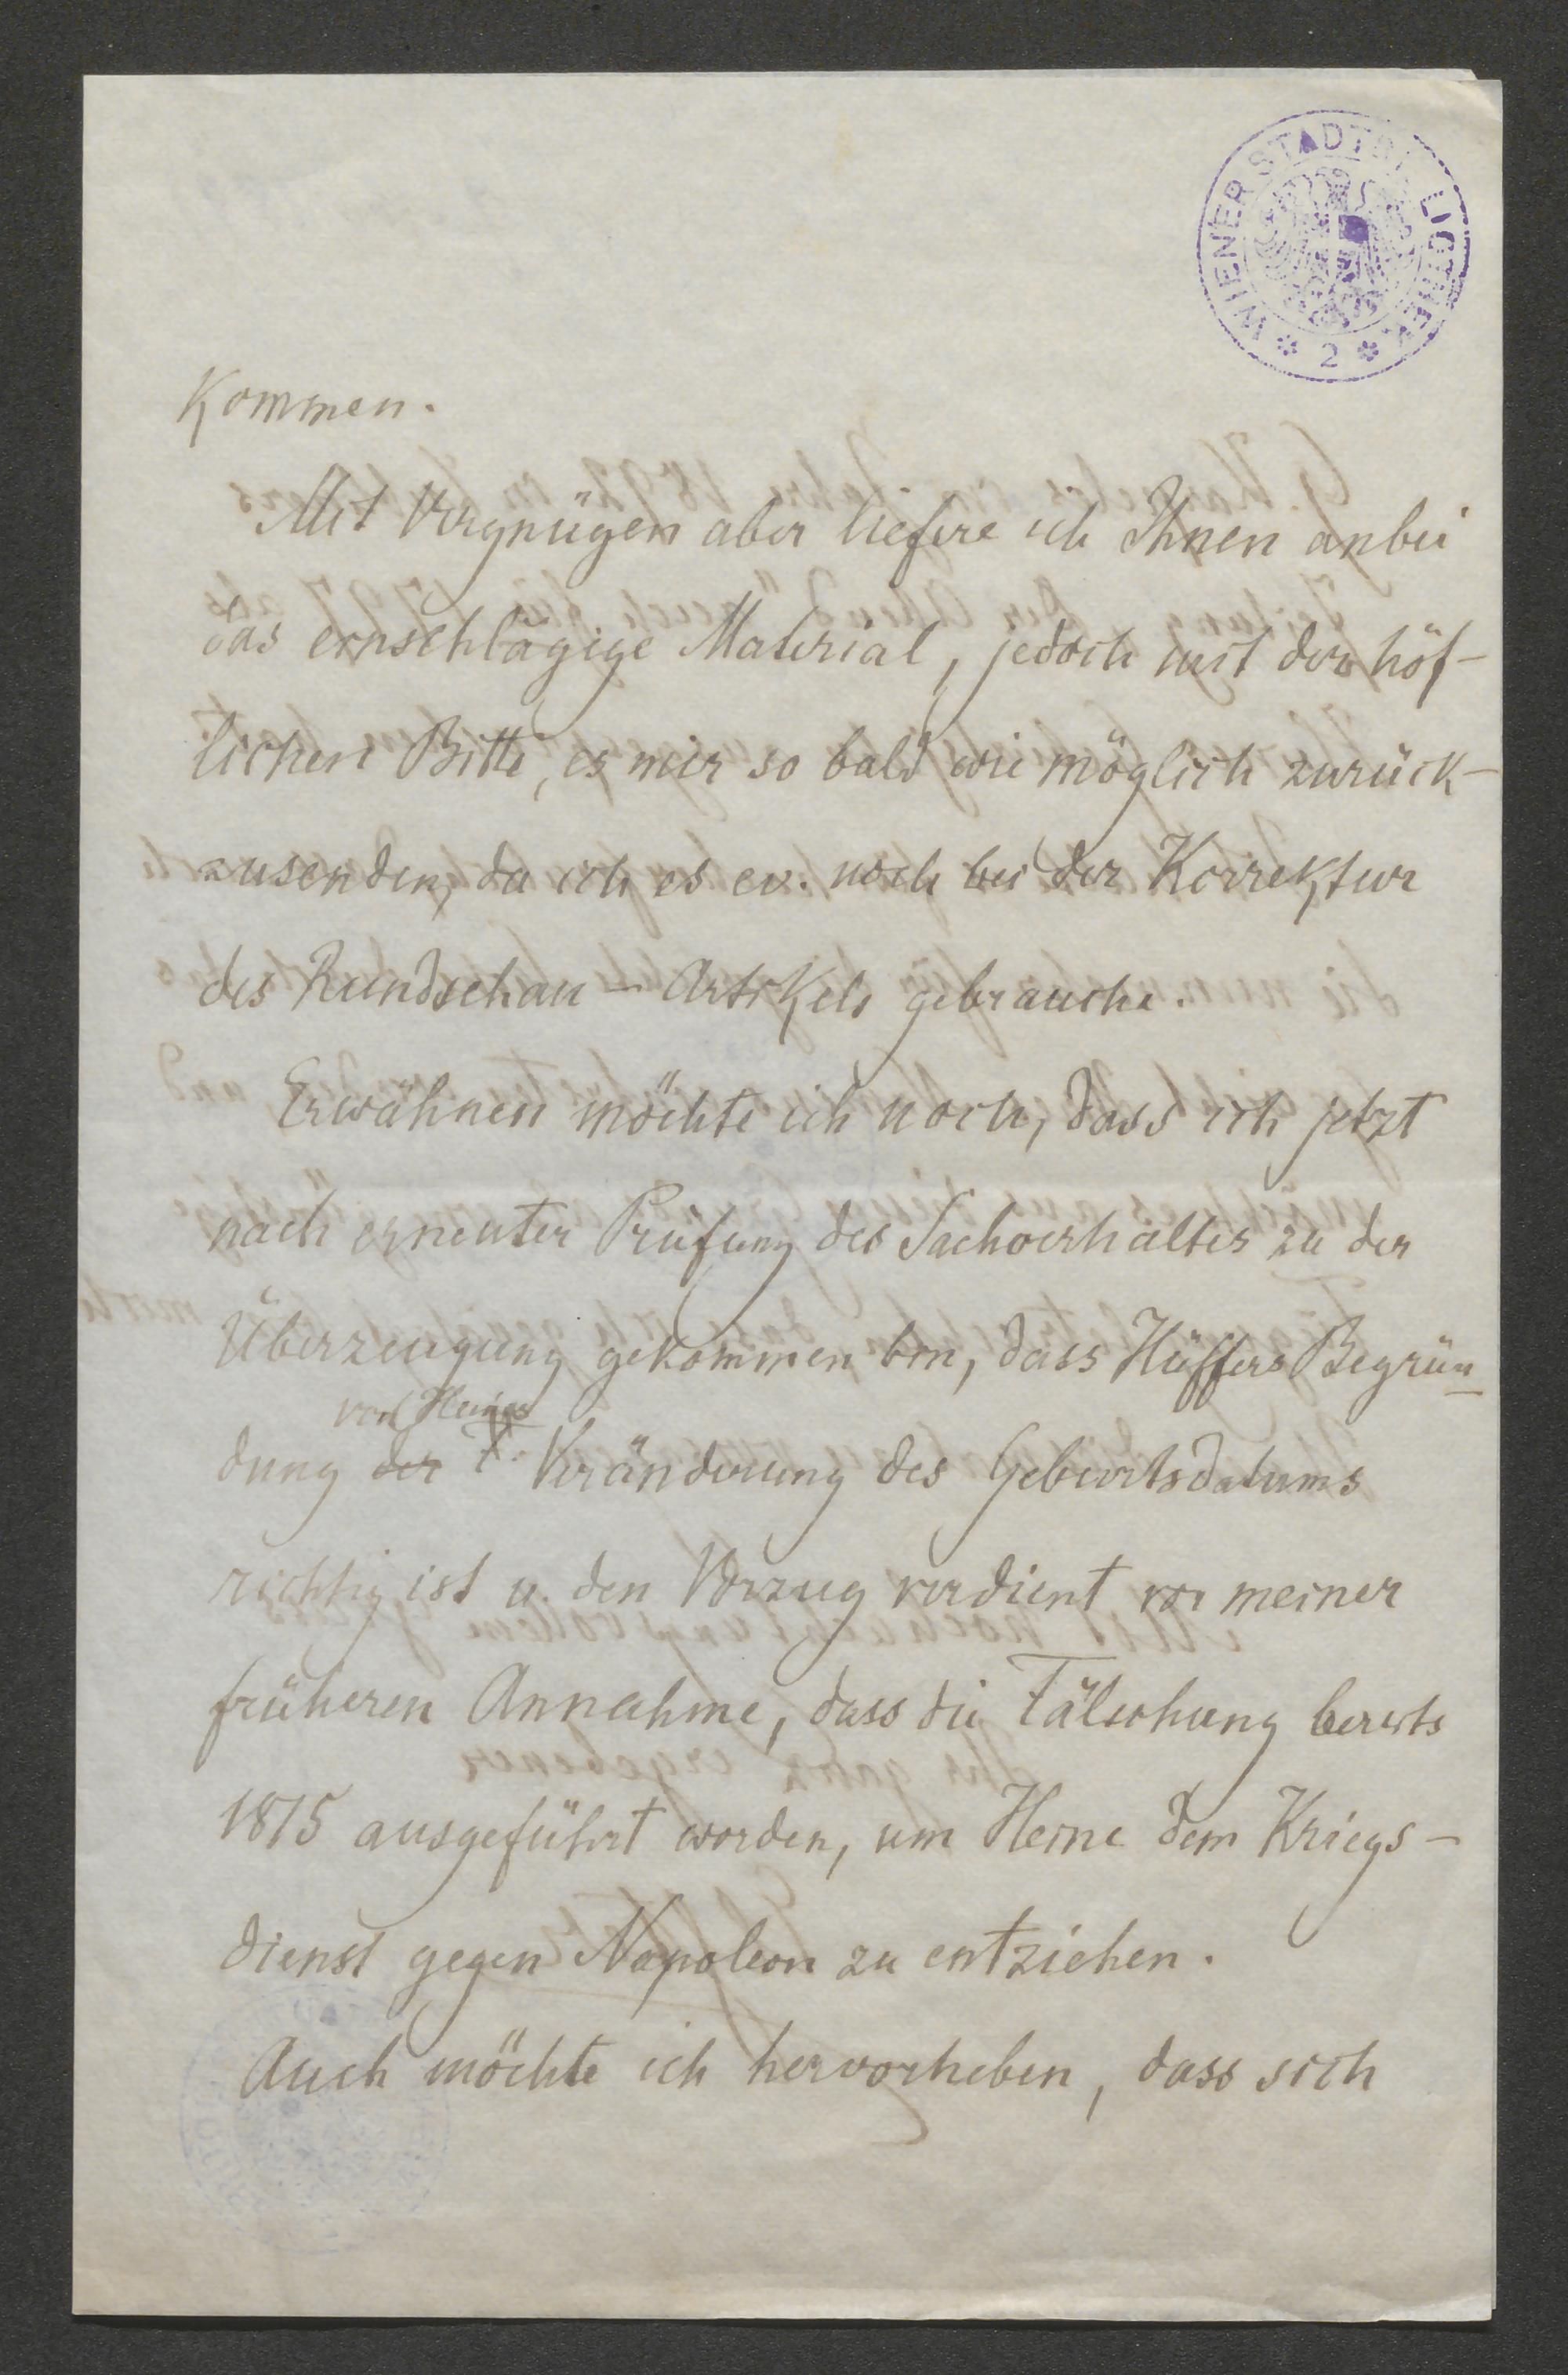 WIENER STADTBIBLIOTHEK
* 2 *
Kommen.
Mit Vergnügen aber liefere ich Ihnen anbei
das einschlägige Material, jedoch mit der höf-
lichen Bitte, es mir so bald wie möglich zurück-
zusenden, da ich es ev. noch bei der Korrektur
des Rundschau-Artikels gebrauche.
Erwähnen möchte ich noch, dass ich jetzt
nach erneuter Prüfung des Sachverhaltes zu der
Überzeugung gekommen bin, dass Hüffers Begrün-
von Heines
dung der Veränderung des Geburtsdatums
richtig ist u. den Vorzug verdient vor meiner
früheren Annahme, dass die Fälschung bereits
1815 ausgeführt worden, um Heine dem Kriegs-
dienst gegen Napoleon zu entziehen.
Auch möchte ich hervorheben, dass sich